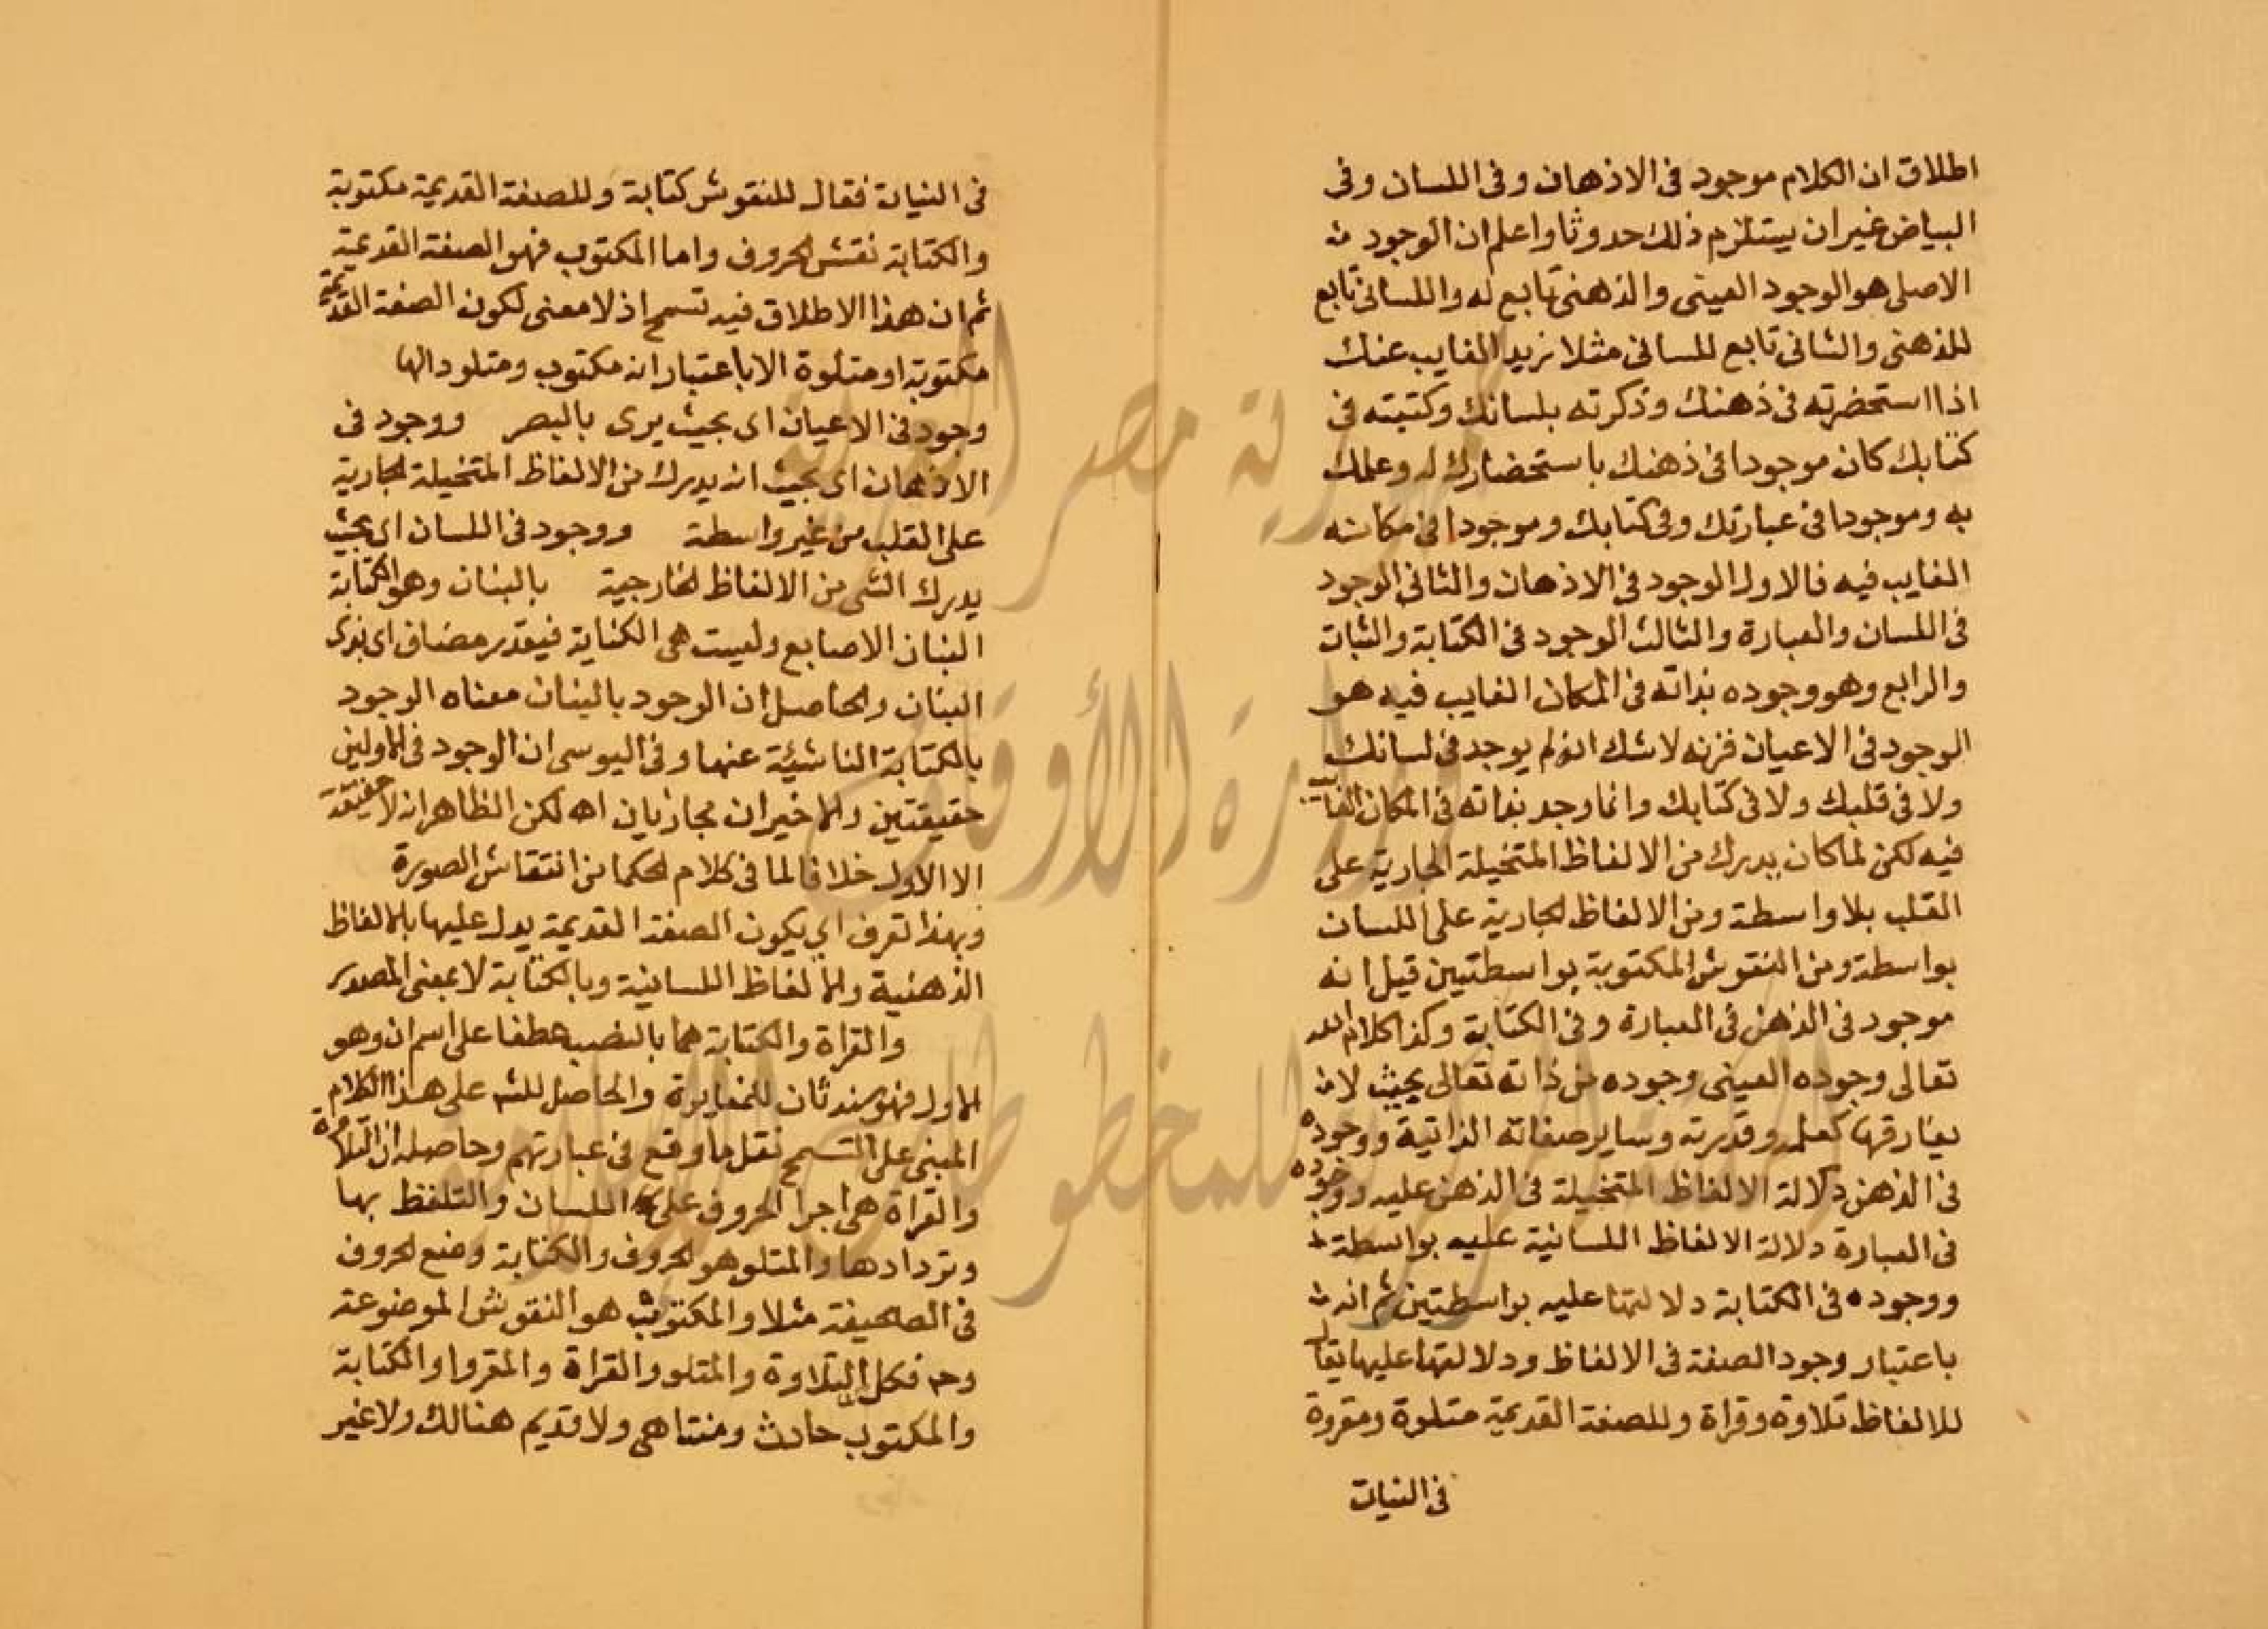 اطلاق ان الكلام موجود فى الاذهان وفى اللسان وفى
البياض غير ان يستلزم ذلك حدوثا واعلم ان الوجود
الاصلى هو الوجود العينى والذهنى تابع له واللسانى تابع
للذهنى والثانى تابع للسانى مثلا زيد الغايب عنك
اذا استحضرته فى ذهنك وذكرته بلسانك وكتبته فى
كتابك كان موجودا فى ذهنك باستحضارك له وعلمك
به وموجودا فى عبارتك وفى كتابك وموجودا فى مكانه
الغايب فيه فالاول الوجود فى الاذهان والثانى الوجود
فى اللسان والعبارة والثالث الوجود فى الكتابة والبنان
والرابع وهو وجوده بذاته فى المكان الغايب فيه هو
الوجود فى الاعيان فزيد لاشك انه لم يوجد فى لسانك
ولا فى قلبك ولا فى كتابك وانما وجد بذاته فى المكان الغايب
فيه لكن لما كان يدرك من الالفاظ المتخيلة الجارية على
القلب بلا واسطة ومن الالفاظ الجارية على اللسان
بواسطة ومن النقوش المكتوبة بواسطتين قيل انه
موجود فى الذهن فى العبارة وفى الكتابة وكذا كلام الله
تعالى وجوده العينى وجوده من ذاته تعالى بحيث لا
يفارقها كعلمه وقدرته وساير صفاته الذاتية ووجوده
فى الذهن دلالة الالفاظ المتخيلة فى الذهن عليه ووجوده
فى العبارة دلالة الالفاظ اللسانية عليه بواسطة
ووجوده فى الكتابة دلالتها عليه بواسطتين ثم انه
باعتبار وجود الصفة فى الالفاظ ودلالتها عليها يقال
للالفاظ تلاوة وقراة وللصفة القديمة متلوة ومقروة
فى البنان
فى البنان فقال للنقوش كتابة وللصفة القديمة مكتوبة
والكتابة نقش الحروف واما المكتوب فهو الصفة القديمة
ثم ان هذا الاطلاق فيه تسمح اذ لا معنى لكون الصفة القديمة
مكتوبة او متلوة الا باعتبار انه مكتوب ومتلو دالها
وجود فى الاعيان اى بحيث يرى بالبصر ووجود فى
الاذهان اى بحيث انه يدرك من الالفاظ المتخيلة الجارية
على القلب من غير واسطة ووجود فى اللسان اى بحيث
يدرك الشى من الالفاظ الخارجية بالبنان وهو الكتابة
البنان الاصابع وليست هى الكتابة فيقدر مضاف اى
البنان والحاصل ان الوجود بالبنان معناه الوجود
بالكتابة الناشئة عنها وفى اليوسى ان الوجود فى الاولين
حقيقتين والاخيران مجازيان اه لكن الظاهر انه لا حقيقة
الا الاول خلافا لما فى كلام الحكما من انتقاش الصورة
وبهذا تعرف اى بكون الصفة القديمة يدل عليها بالالفاظ
الذهنية والالفاظ اللسانية وبالكتابة لا بمعنى المصدر
والقراة والكتابة هما بالنصب عطفا على اسم ان وهو
الاول فهو سند ثان للمغايرة والحاصل للشم على هذا الكلام
المبنى على التسمح نقل ما وقع فى عبارتهم وحاصله ان التلاوة
والقراة هى اجرا الحروف على اللسان والتلفظ بها
وتردادها والمتلو هو الحروف والكتابة وضع الحروف
فى الصحيفة مثلا والمكتوب هو النقوش الموضوعة
وح فكل التلاوة والمتلو والقراة والمقروا والكتابة
والمكتوب حادث ومتناهى ولا قديم هنالك ولا غير